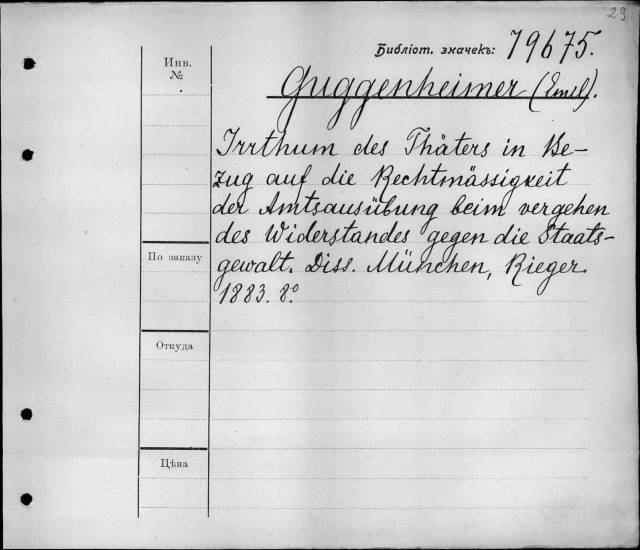 29
Библіот. значекъ: 79675.
Инв.
№
Guggenheimer (Emil).
Irrthum des Thäters in Be-
zug auf die Rechtmässigkeit
der Amtsausübung beim vergehen
des Widerstandes gegen die Staats-
По заказу
gewalt. Diss. München, Rieger.
1883. 8.º
Откуда
Цѣна